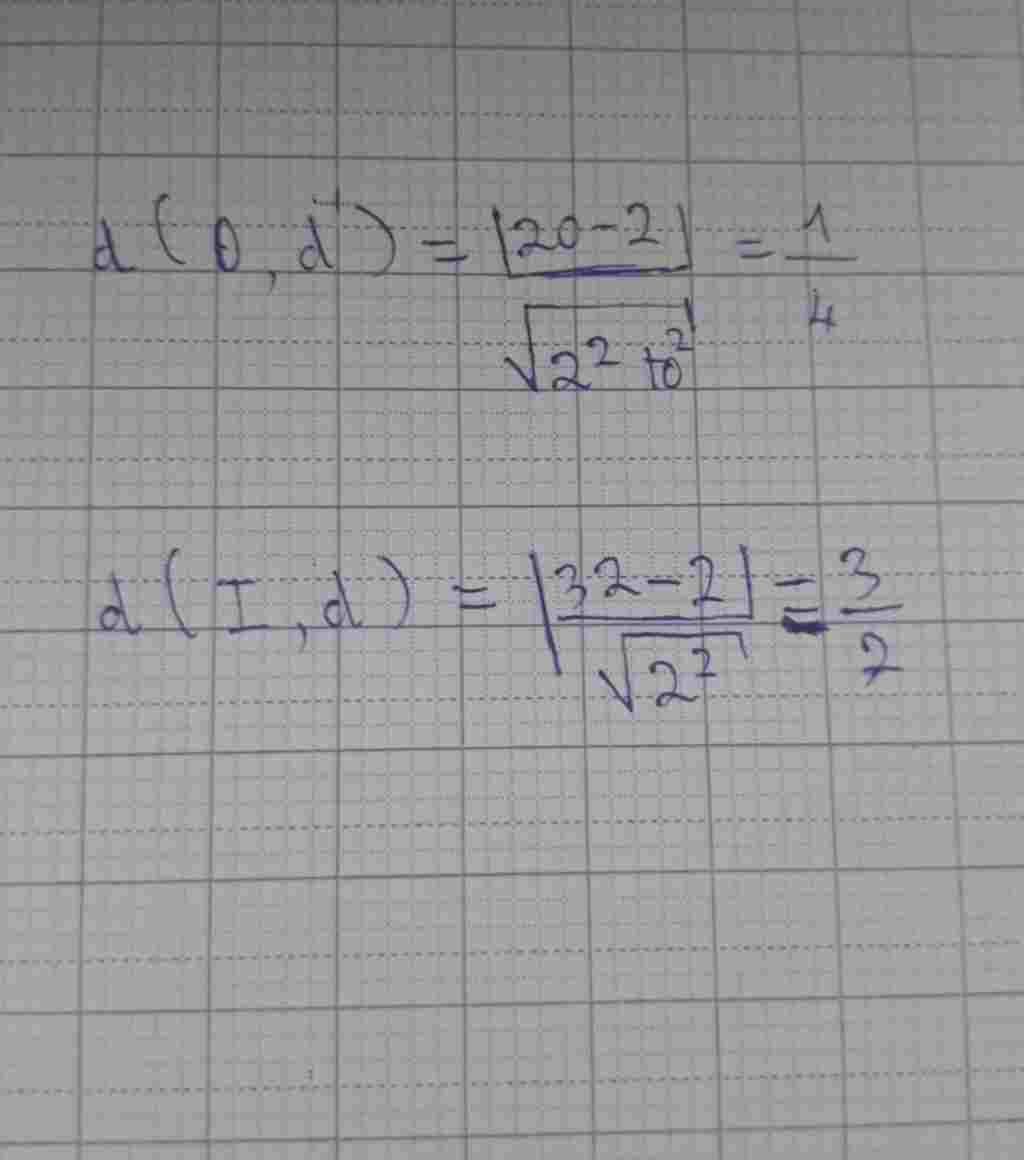 d(0,d') = |20-2| / √(2² +0²) = 1/4
d(I,d) = |32-2| / √(2²) = 3/2